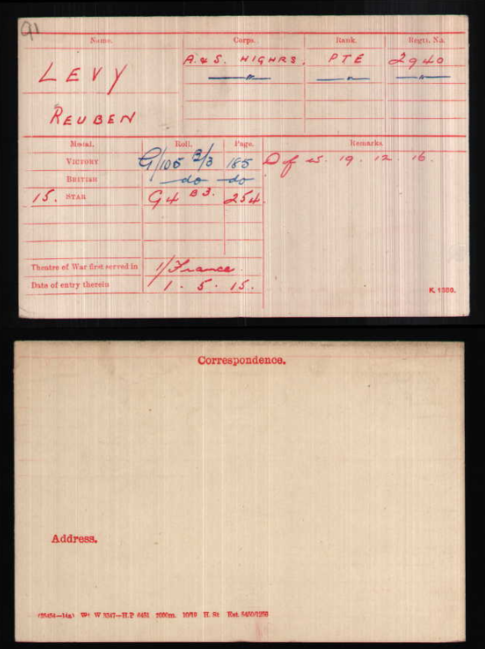 91
Name. Corps. Rank. Regtl. No.
LEVY A & S. HIGHRS. PTE 2940
" " "
REUBEN
Medal. Roll. Page. Remarks
VICTORY G/105 B3 185 D of S. 19. 12. 16.
BRITISH do do
15. STAR G4 B3. 254.
Theatre of War first served in 1/France
Date of entry therein 1. 5. 15.
K. 1380.
Correspondence.
Address.